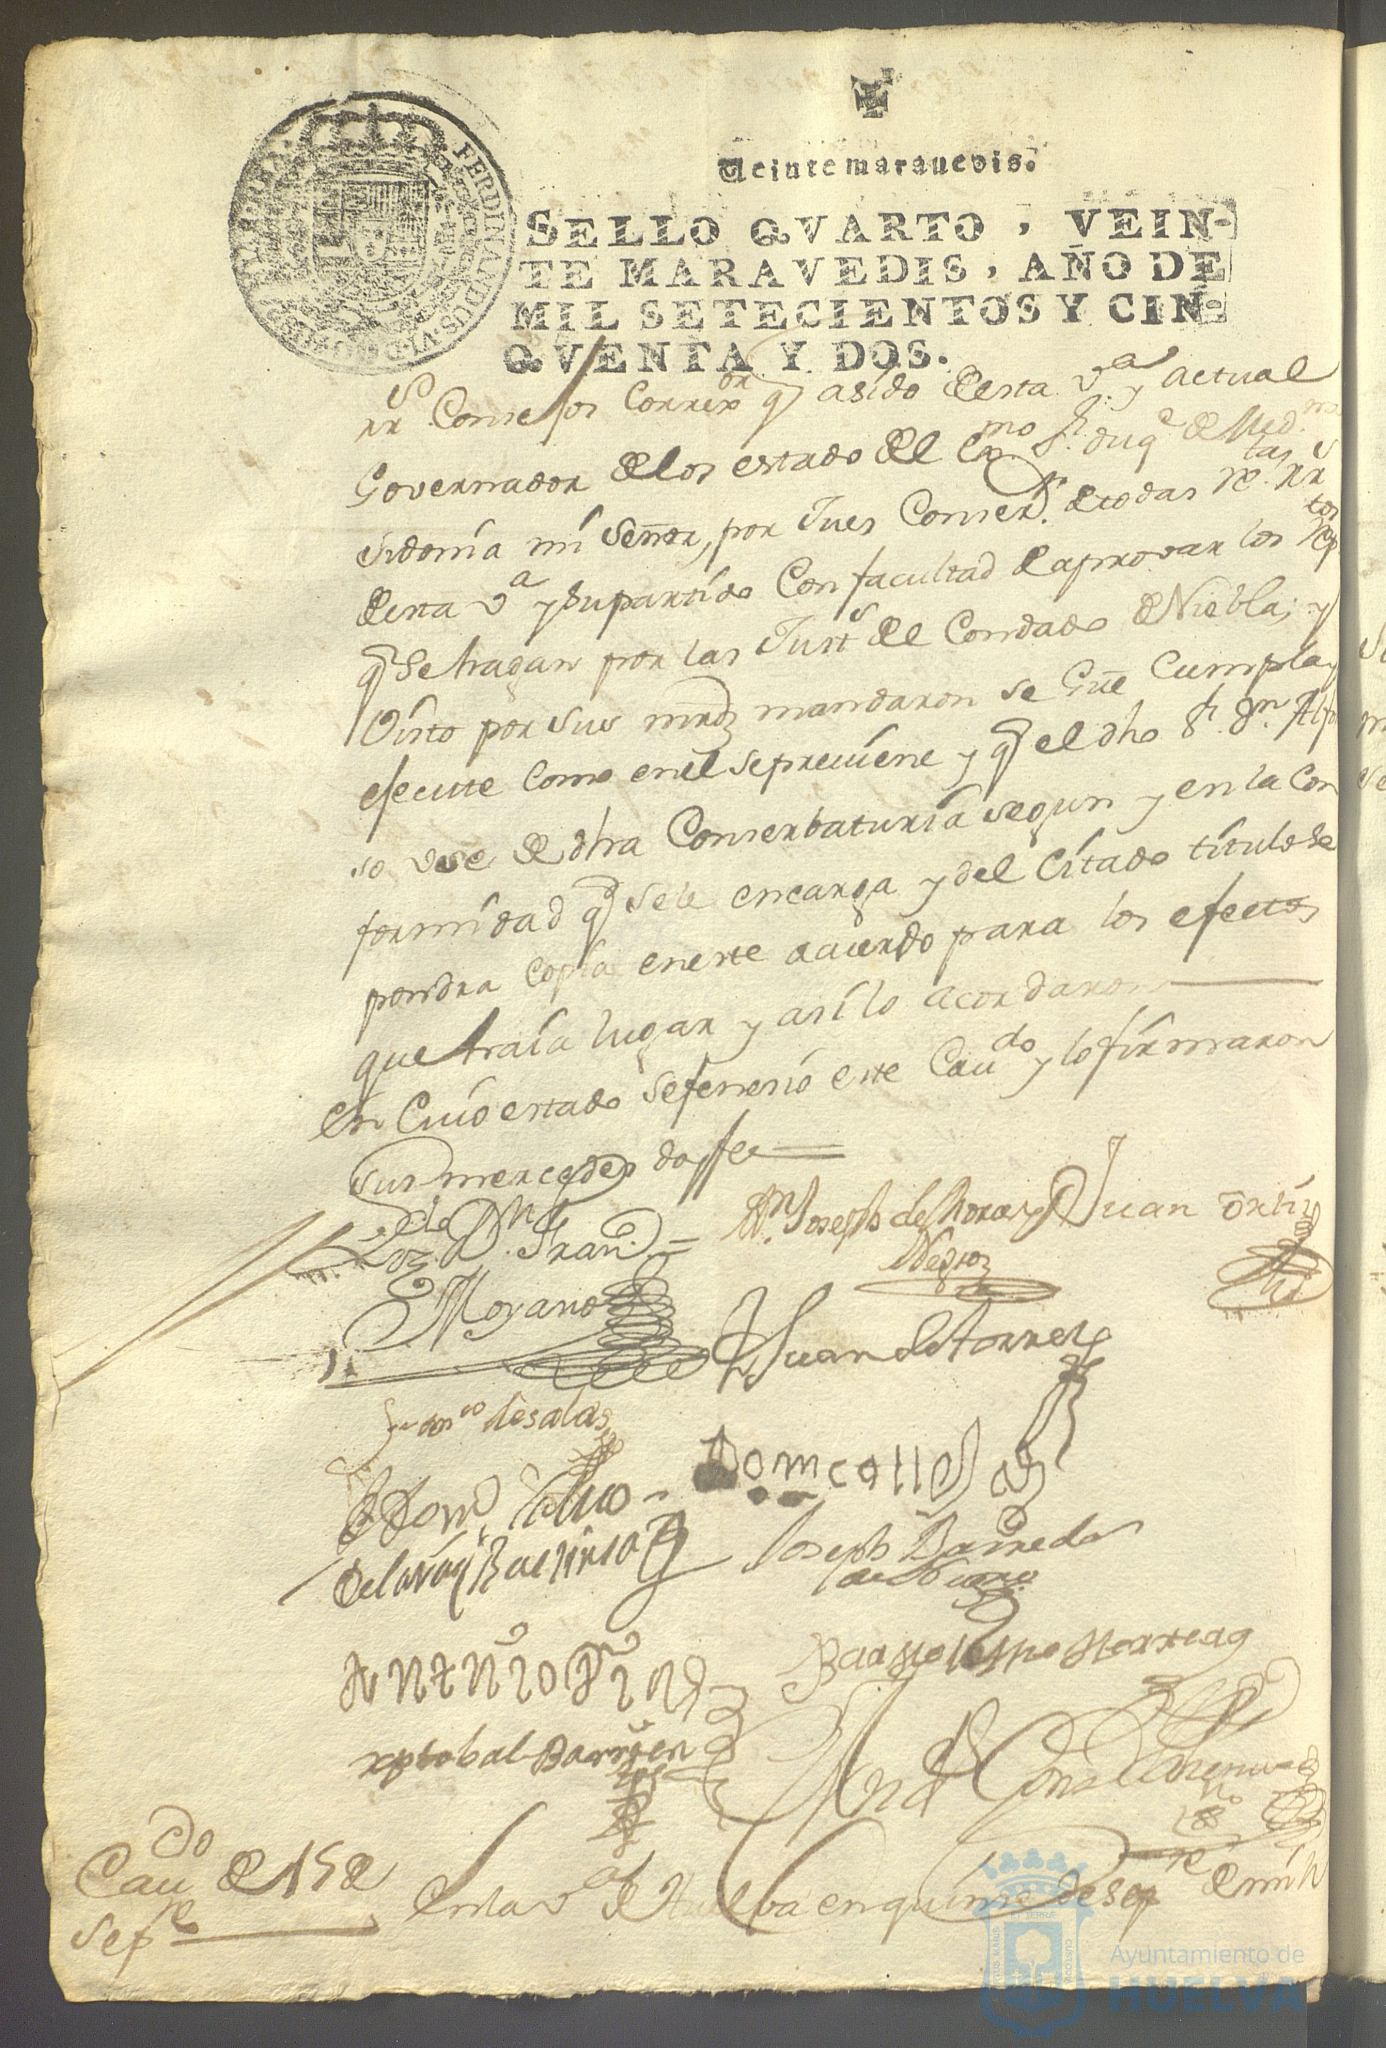 FERDINANDUS VI D G
Veinte maravedis.
SELLO QVARTO, VEIN-
TE MARAVEDIS, AÑO DE
MIL SETECIENTOS Y CIN-
QVENTA Y DOS.
rr.s Consejos Correx.or q asido desta v.a y actual
Governador de los estado del Ex.mo S.r duq.e de Med.na
sidonia mi señor, por Jues Conser.r de todas r.tas
desta v.a y su partido Con facultad de aprovar los Rep.tos
q se hagan por las Just.s del Condado de Niebla; y
Visto por sus mrds mandaron se G.de Cumpla y
ejecute como en el se previene y q el dho S.r Dn. Alfon
so use de dha Conserbaturia segun y en la Con
formidad q se le encarga y del Citado titulo se
pondra copia en este acuerdo para los efectos
que traia lugar y asi lo acordaron
en Cuio estado se feneció este Cau.do y lo firmaron
sus mercedes doi fee
L.do D.n Fran.co
Moyano
D.n Joseph de
Negron
Juan Ortiz
Juan de Torres
Fran.co de Salas
Dom
Joseph Barreda
Antonio
Bartolome Herrera
xptobal Barr
Cau.do de 15 de
Sep.e
En la v.a de Huelva en quinse de Sep.re de mil
Ayuntamiento de
HUELVA